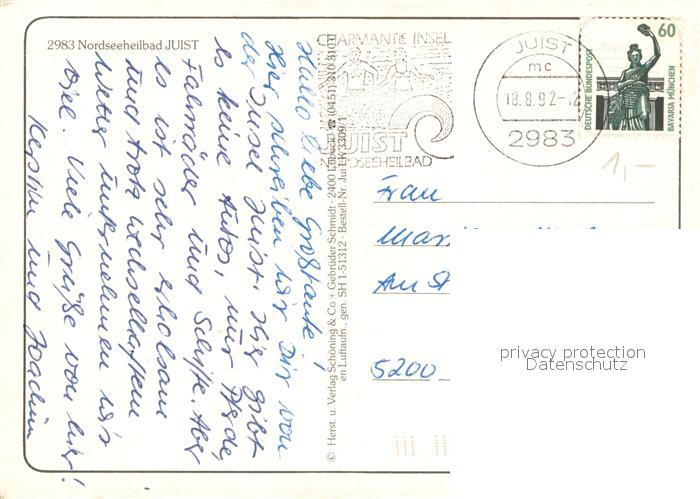 2983 Nordseeheilbad JUIST
Hallo liebe Großtante!
Hier schreiben wir Dir von
der Insel Juist. Hier gibt
es keine Autos, nur Pferde,
Fahrräder und Schiffe. Aber
es ist sehr erholsam
und trotz wechselhaftem
Wetter unternehmen wir
viel. Viele Grüße von hier!
Kerstin und Joachim
© Herst. u. Verlag Schöning & Co + Gebrüder Schmidt · 2400 Lübeck · ☎ (0451)
en Luftaufn., gen. SH 1-51312 · Bestell-Nr. Jui
CHARMANTE INSEL
JUIST
NORDSEEHEILBAD
JUIST
mc
18.8.92-12
2983
60
DEUTSCHE BUNDESPOST
BAVARIA MÜNCHEN
1,–
Frau
5200
privacy protection
Datenschutz